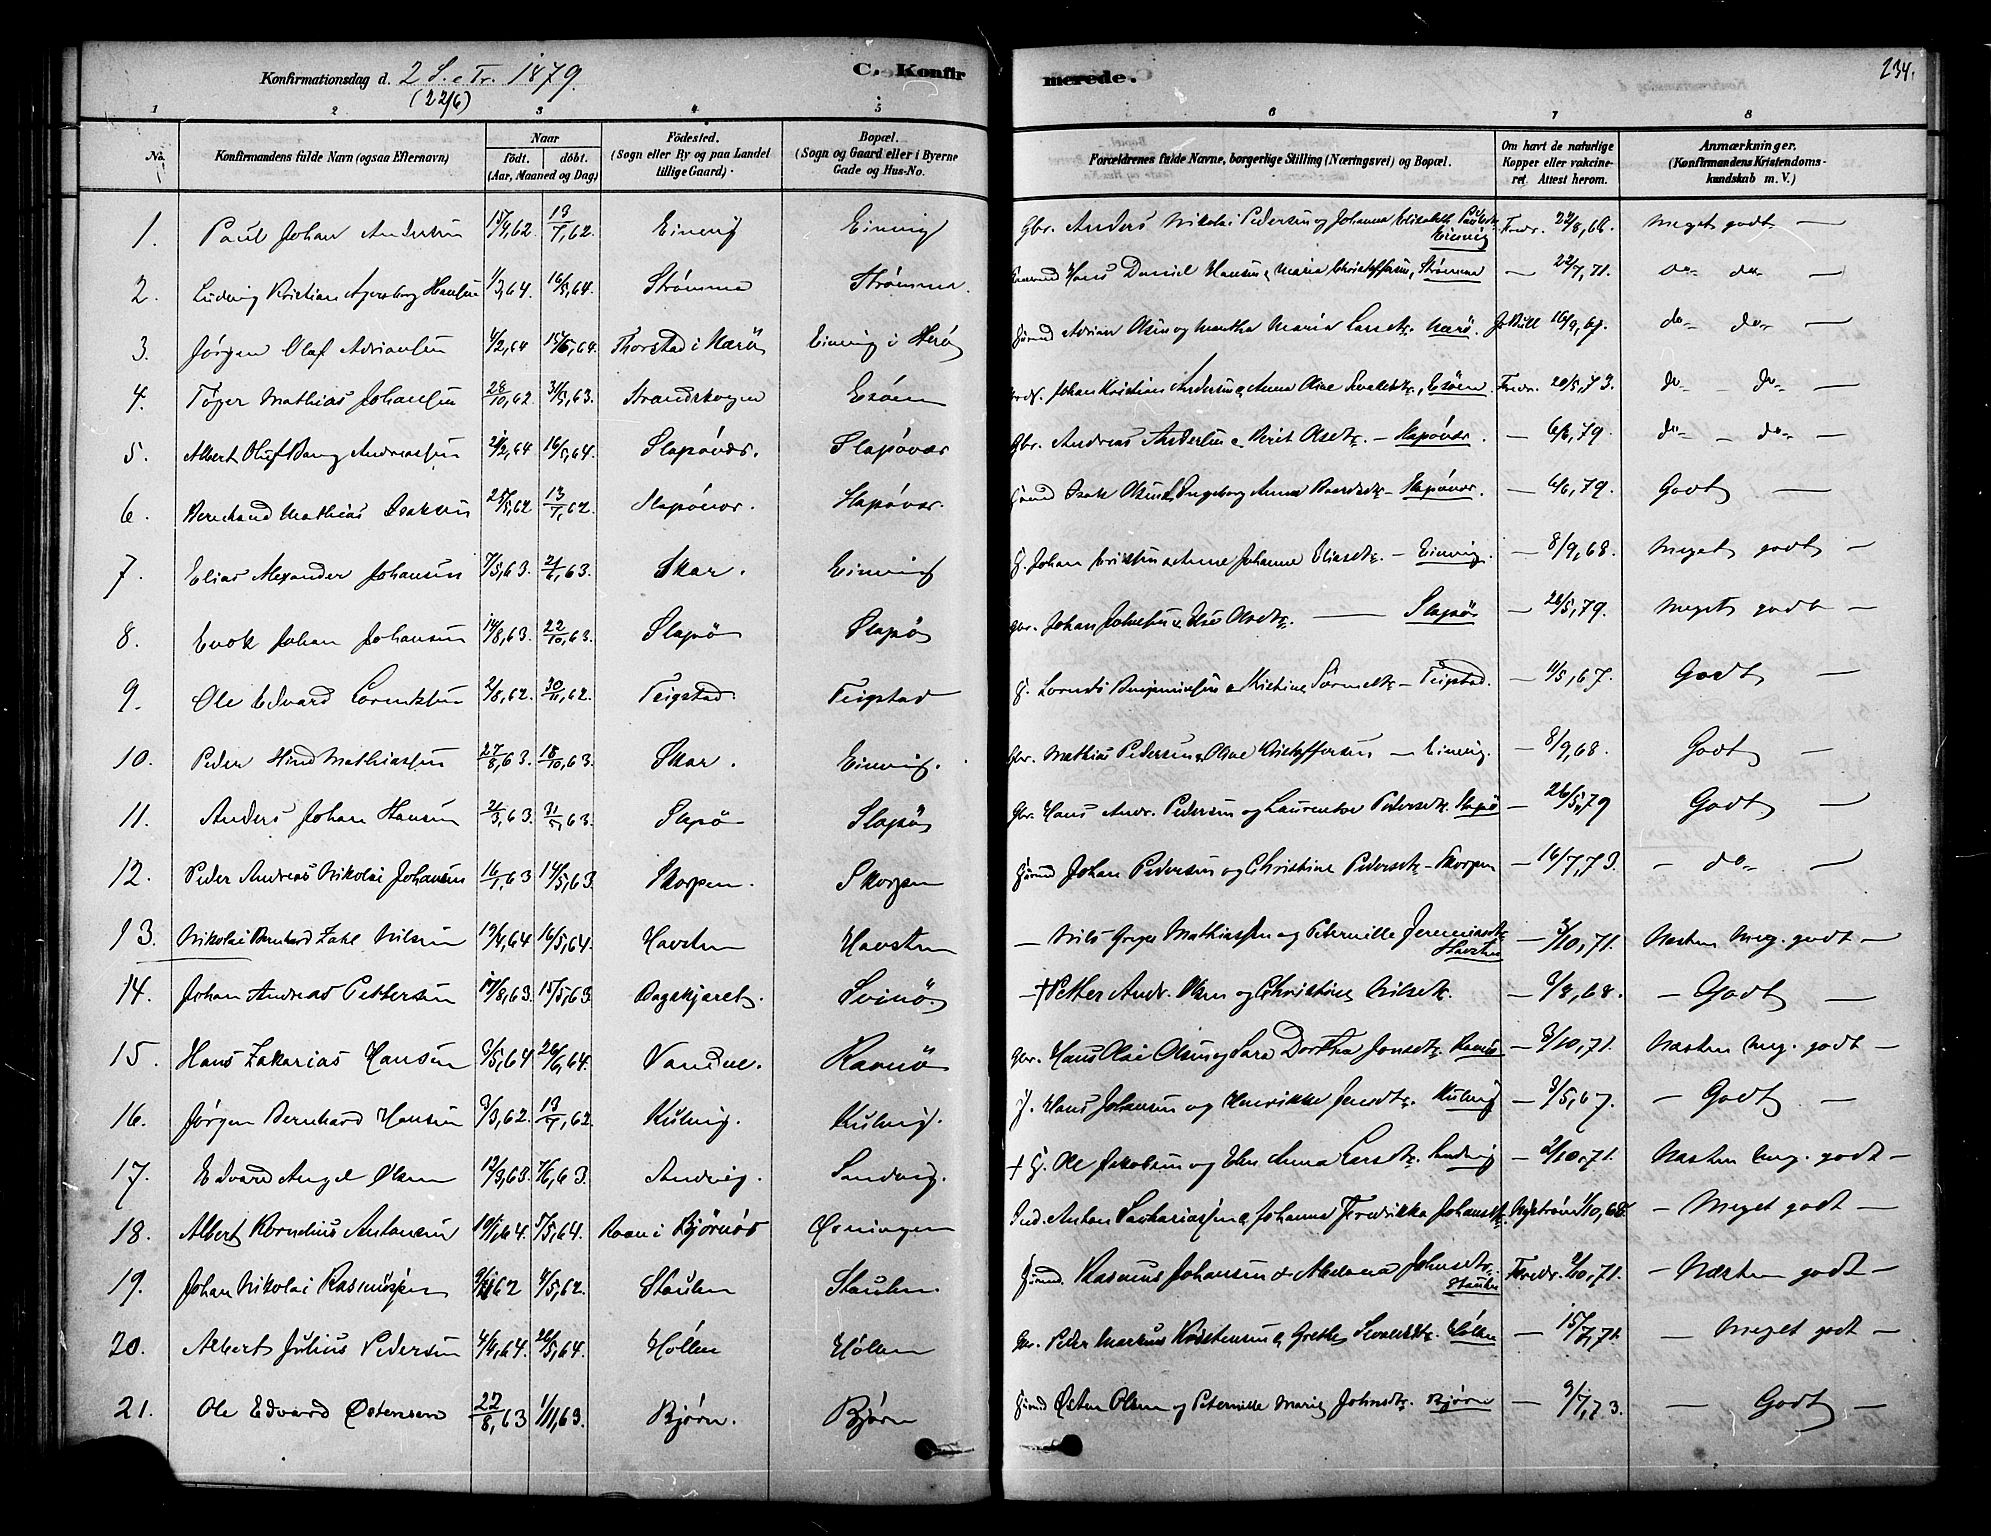 Konfirmationsdag d. 2 S. e Tr. 1879.
(22/6)
C. Konfir
merede.
234.
1 2 3 4 5 6 7 8
No.
Konfirmandens fulde Navn (ogsaa Efternavn)
Naar
födt. döbt.
(Aar, Maaned og Dag)
Födested.
(Sogn eller By og paa Landet
tillige Gaard)
Bopæl.
(Sogn og Gaard eller i Byerne
Gade og Hus-No.
Forældrenes fulde Navne, borgerlige Stilling (Næringsvei) og Bopæl.
Om havt de naturlige
Kopper eller vakcine-
ret Attest herom.
Anmærkninger.
(Konfirmandens Kristendoms-
kundskab m. V.)
1. Paul Johan Andersen 15/4,62 13/7,62. Einvig Einvig Gbr. Anders Nikolai Pedersen og Johanna Elisabeth Einvig Fredr. 22/8,68. Meget godt —
2. Ludvig Kristian Hansen 1/3,64 16/5,64. Strømme Strømme. Hans Daniel Hansen & Maria Christoffersen, Strømme — 22/7,71. do do —
3. Jørgen Olaf Adriansen 4/2,64 15/5,64. Thorstad i Nærö Einvig i Herö Adrian Olsen og Martha Maria Larsdtr. Nærö. 16/9,67. do do —
4. Töger Mathias Johansen 28/10,62. 31/5,63. Strandskogen Johan Kristian Andersen & Anna Oline Fredr. 20/5,73. do do —
5. Albert Oluf Bang Andreassen 21/2,64 16/5,64. Slapövær. Slapövær Gbr. Andreas Andersen & Berit Olsdtr. — Slapövær. — 6/6,79. do do —
6. Bernhard Mathias Isaksen 25/5,62 13/7,62. Slapövær. Slapövær. Isak Olsen & Ingeborg Anna — Slapövær. — 6/6,79. Godt —
7. Elias Alexander Johansen 7/5,63. 21/6,63. Skar. Einvig G. Johan Kristian & Anne Johanna Eliasdtr. — Einvig. — 8/9,68. Meget godt —
8. Enok Johan Johansen 14/8,63. 22/10,63. Slapö Slapö Gbr. Johan Johnsen & Else Olsdtr. — Slapö — 26/5,79. Meget godt —
9. Ole Edvard Lorentsen 2/8,62. 30/11,62. Teigstad. Teigstad G. Lorents Benjaminsen & Kristine — Teigstad. — 11/5,67. Godt —
10. Peder Hind Mathiassen 27/8,63. 18/10,63. Skar. Einvig. Gbr. Mathias Pedersen & Oline Kristoffersen — Einvig. — 8/9,68. Godt —
11. Anders Johan Hansen 21/3,63. 31/5,63. Slapö Slapö Gbr. Hans Andr. Pedersen og Laurentse Pedersdtr. Slapö — 26/5,79 Godt —
12. Peder Andreas Nikolai Johansen 16/1,63 14/5,63. Skorpen. Skorpen Johan Pedersen og Christine Pedersdtr. — Skorpen — 16/7,73. — do —
13. Nikolai Bernhard Zahl Nilsen 13/4,64 16/5,64. Havsten Havsten — Nils Mathiassen og Peternille Jeremiasdtr. Havsten — 3/10,71. Næsten meg. godt —
14. Johan Andreas Pettersen 15/5,63. Svinö — † Petter Andr. Olsen og Christine Nilsdtr. — 9/8,68. — Godt —
15. Hans Zakarias Hansen 9/5,64 26/6,64. Vandve. Ravnö Gbr. Hans Olai Olsen og Sara Dorthea Jonsdtr. Ravnö — 3/10,71. Næsten meg. godt —
16. Jørgen Bernhard Hansen 9/3,62. 13/7,62. Kulvig. Kulvig. J. Hans Johansen og Henrikke Jensdtr. Kulvig — 9/5,67. — Godt —
17. Edvard Angel Olsen 12/3,63. 7/6,63. Sandvig. Sandvig. † G. Ole Jakobsen og Elen Anna Larsdtr. Sandvig — 2/10,71. Næsten meg. godt —
18. Albert Kornelius Antonsen 10/1,64. 5/5,64. i Bjørnör Ind. Anton Sachariassen & Johanna Fredrikka Johansdtr. — Meget godt —
19. Johan Nikolai Rasmussen 62 4/5,62. Staulen Staulen. Rasmus Johansen & Abelona Johnsdtr. Staulen Fredr. 2/10,71. — Næsten godt —
20. Albert Julius Pedersen 4/4,64. 26/5,64. Hölen Hölen Gbr. Peder Markus Kristensen & Grethe Hölen — 15/7,71. — Meget godt —
21. Ole Edvard Østensen 22/8,63 1/11,63. Bjørn. Bjørn Østen Olsen og Peternille Marie Johnsdtr. Bjørn — 9/7,73. — Godt —